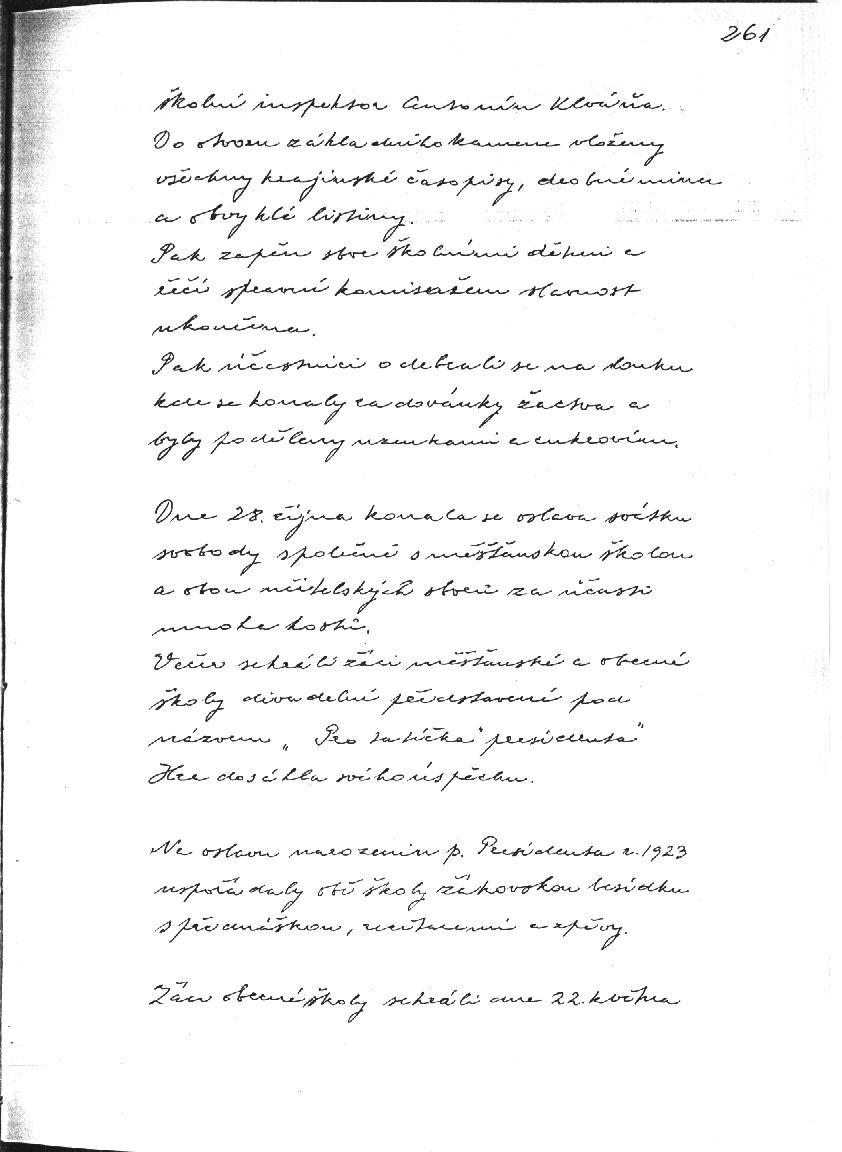 261
školní inspektor Antonín Klváňa.
Do otvoru základního kamene vloženy
všechny krajinské časopisy, drobné mince
a obvyklé listiny.
Pak zapěn sbor školními dětmi a
řečí správní komisařem slavnost
ukončena.
Pak účastníci odebrali se na louku
kde se konaly radovánky žactva a
byly poděleny uzenkami a cukrovím.
Dne 28. října konala se oslava svátku
svobody společně s měšťanskou školou
a obou učitelských sborů za účasti
mnoha hostů.
Večer sehráli žáci měšťanské a obecné
školy divadelní představení pod
názvem „Pro tatíčka presidenta"
Hra dosáhla svého úspěchu.
Na oslavu narozenin p. Presidenta r. 1923
uspořádaly obě školy žákovskou besídku
s přednáškou, recitacemi a zpěvy.
Žáci obecné školy sehráli dne 22. května